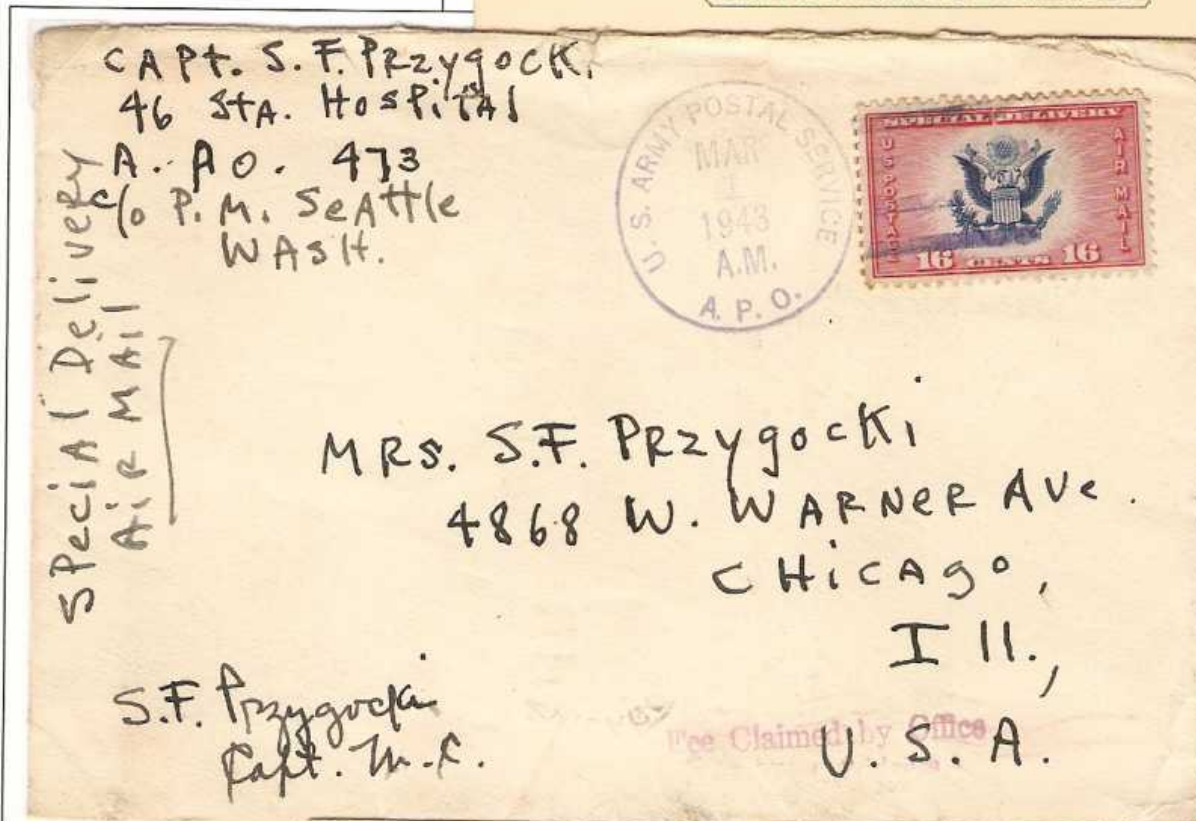 CAPt. S. F. PRzygocki
46 StA. HosPitAl
A. P.O. 473
c/o P. M. SeAttle
WASH.
SPeciAl Delivery
AiR MAil
U. S. ARMY POSTAL SERVICE
MAR
1
1943
A.M.
A. P. O.
SPECIAL DELIVERY
US POSTAGE
AIR MAIL
16 CENTS 16
MRS. S.F. PRzygocki
4868 W. WARNER AVe.
CHicAgo,
Ill.,
U. S. A.
S.F. Przygocki
Capt. M.C.
Fee Claimed by Office